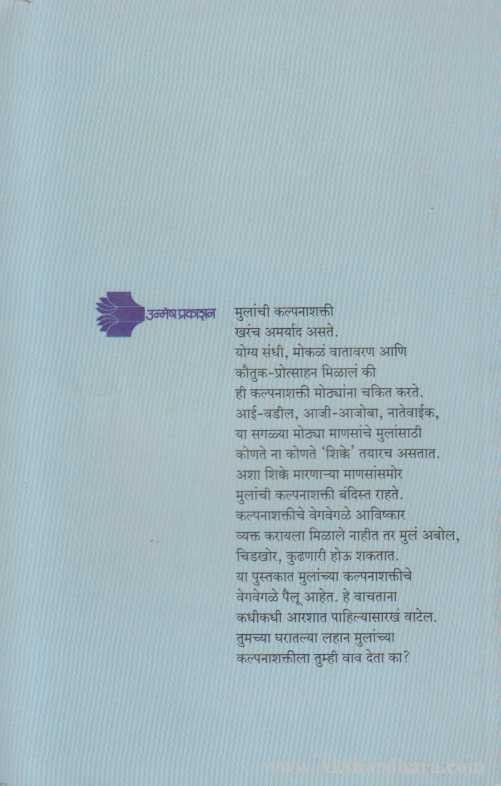 उन्मेष प्रकाशन
मुलांची कल्पनाशक्ती
खरंच अमर्याद असते.
योग्य संधी, मोकळं वातावरण आणि
कौतुक-प्रोत्साहन मिळालं की
ही कल्पनाशक्ती मोठ्यांना चकित करते.
आई-वडील, आजी-आजोबा, नातेवाईक,
या सगळ्या मोठ्या माणसांचे मुलांसाठी
कोणते ना कोणते ‘शिक्के’ तयारच असतात.
अशा शिक्के मारणाऱ्या माणसांसमोर
मुलांची कल्पनाशक्ती बंदिस्त राहते.
कल्पनाशक्तीचे वेगवेगळे आविष्कार
व्यक्त करायला मिळाले नाहीत तर मुलं अबोल,
चिडखोर, कुढणारी होऊ शकतात.
या पुस्तकात मुलांच्या कल्पनाशक्तीचे
वेगवेगळे पैलू आहेत. हे वाचताना
कधीकधी आरशात पाहिल्यासारखं वाटेल.
तुमच्या घरातल्या लहान मुलांच्या
कल्पनाशक्तीला तुम्ही वाव देता का?